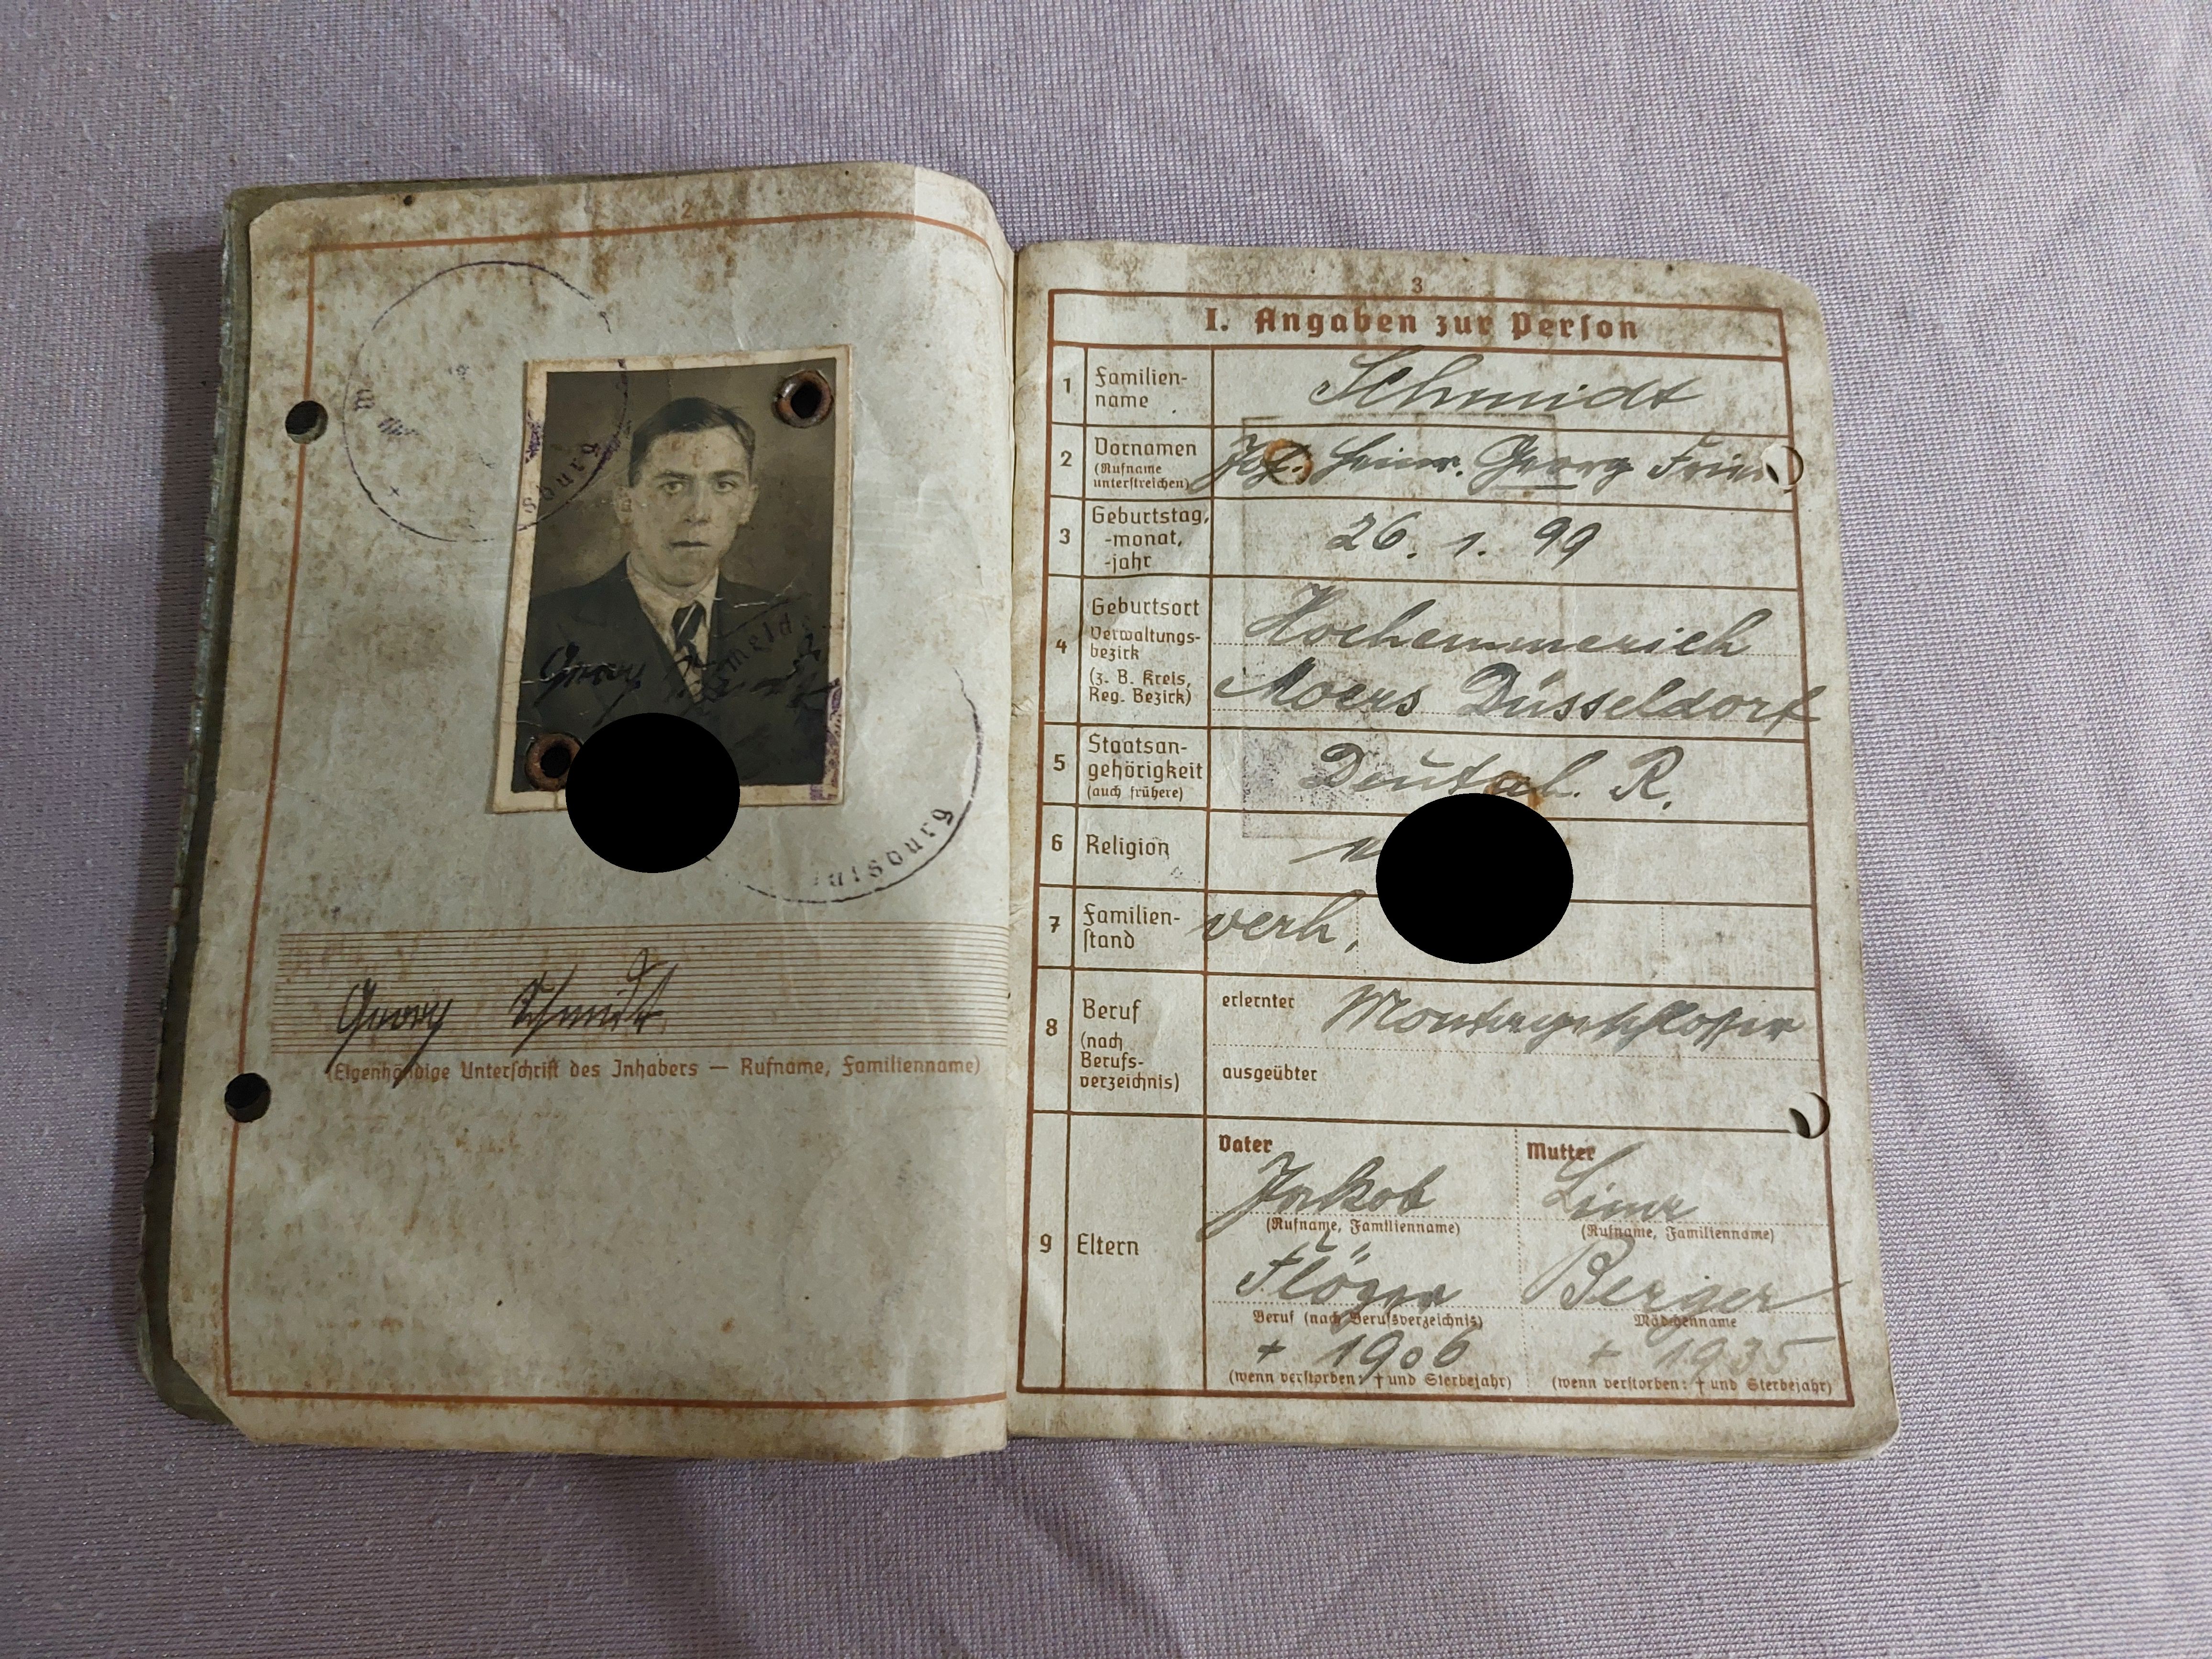 2
sburg
meld
uisburg
Georg Schmidt
(Eigenhändige Unterschrift des Inhabers — Rufname, Familienname)
3
I. Angaben zur Person
1 Familien-
name
Schmidt
2 Vornamen
(Rufname
unterstreichen)
Heinr. Georg
3 Geburtstag,
-monat,
-jahr
26. 1. 99
4 Geburtsort
Verwaltungs-
bezirk
(z. B. Kreis,
Reg. Bezirk)
Hochemmerich
Moers Düsseldorf
5 Staatsan-
gehörigkeit
(auch frühere)
R.
6 Religion
7 Familien-
stand
verh.
8 Beruf
(nach
Berufs-
verzeichnis)
erlernter
ausgeübter
9 Eltern
Vater
Jakob
(Rufname, Familienname)
Beruf (nach Berufsverzeichnis)
+ 1906
(wenn verstorben: † und Sterbejahr)
Mutter
(Rufname, Familienname)
Berger
Mädchenname
+ 1935
(wenn verstorben: † und Sterbejahr)